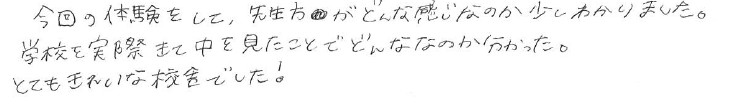 今回の体験をして、先生方がどんな感じなのか少しわかりました。
学校を実際まて中を見たことでどんななのか分かった。
とてもきれいな校舎でした!